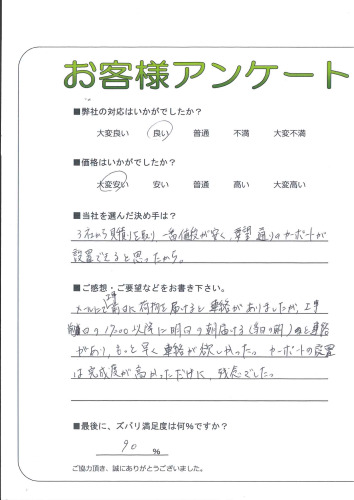 お客様アンケート
■弊社の対応はいかがでしたか？
大変良い 良い 普通 不満 大変不満
■価格はいかがでしたか？
大変安い 安い 普通 高い 大変高い
■当社を選んだ決め手は？
3社から見積りを取り一番値段が安く、希望通りのカーポートが
設置できると思ったから。
■ご感想・ご要望などをお書き下さい。
メールにて工事前日に荷物を届けると連絡がありましたが、工事
の17:00以降に明日の朝届ける(今日の明)のと連絡
があり、もっと早く連絡が欲しかった。カーポートの設置
は完成度が高かっただけに、残念でした。
■最後に、ズバリ満足度は何%ですか？
90 %
ご協力頂き、誠にありがとうございました。